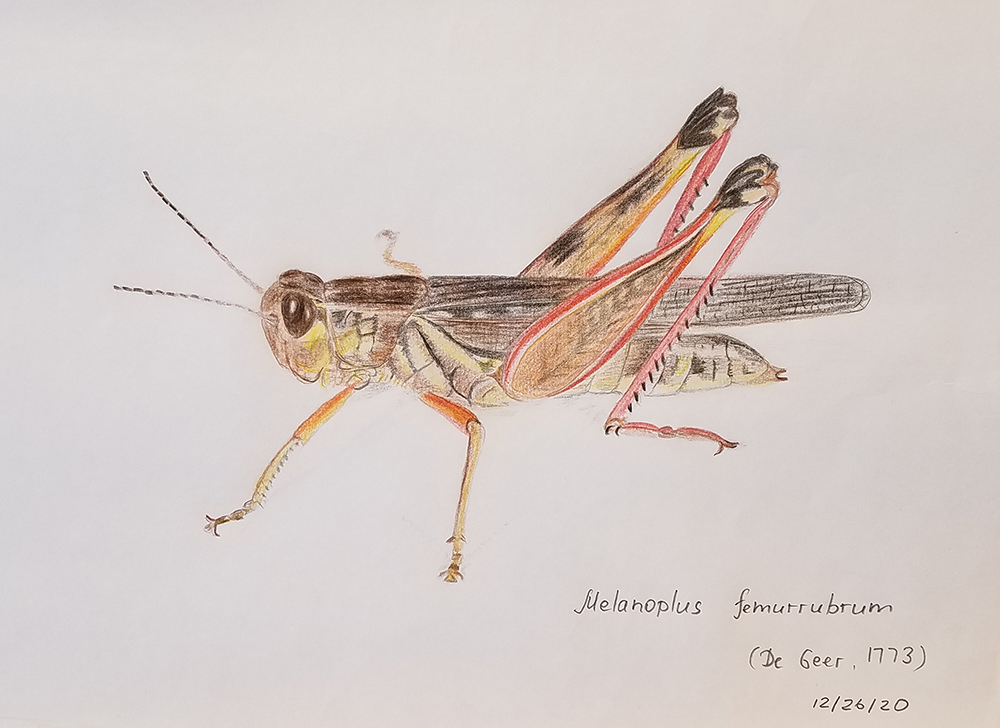 Melanoplus femurrubrum
(De Geer, 1773)
12/26/20